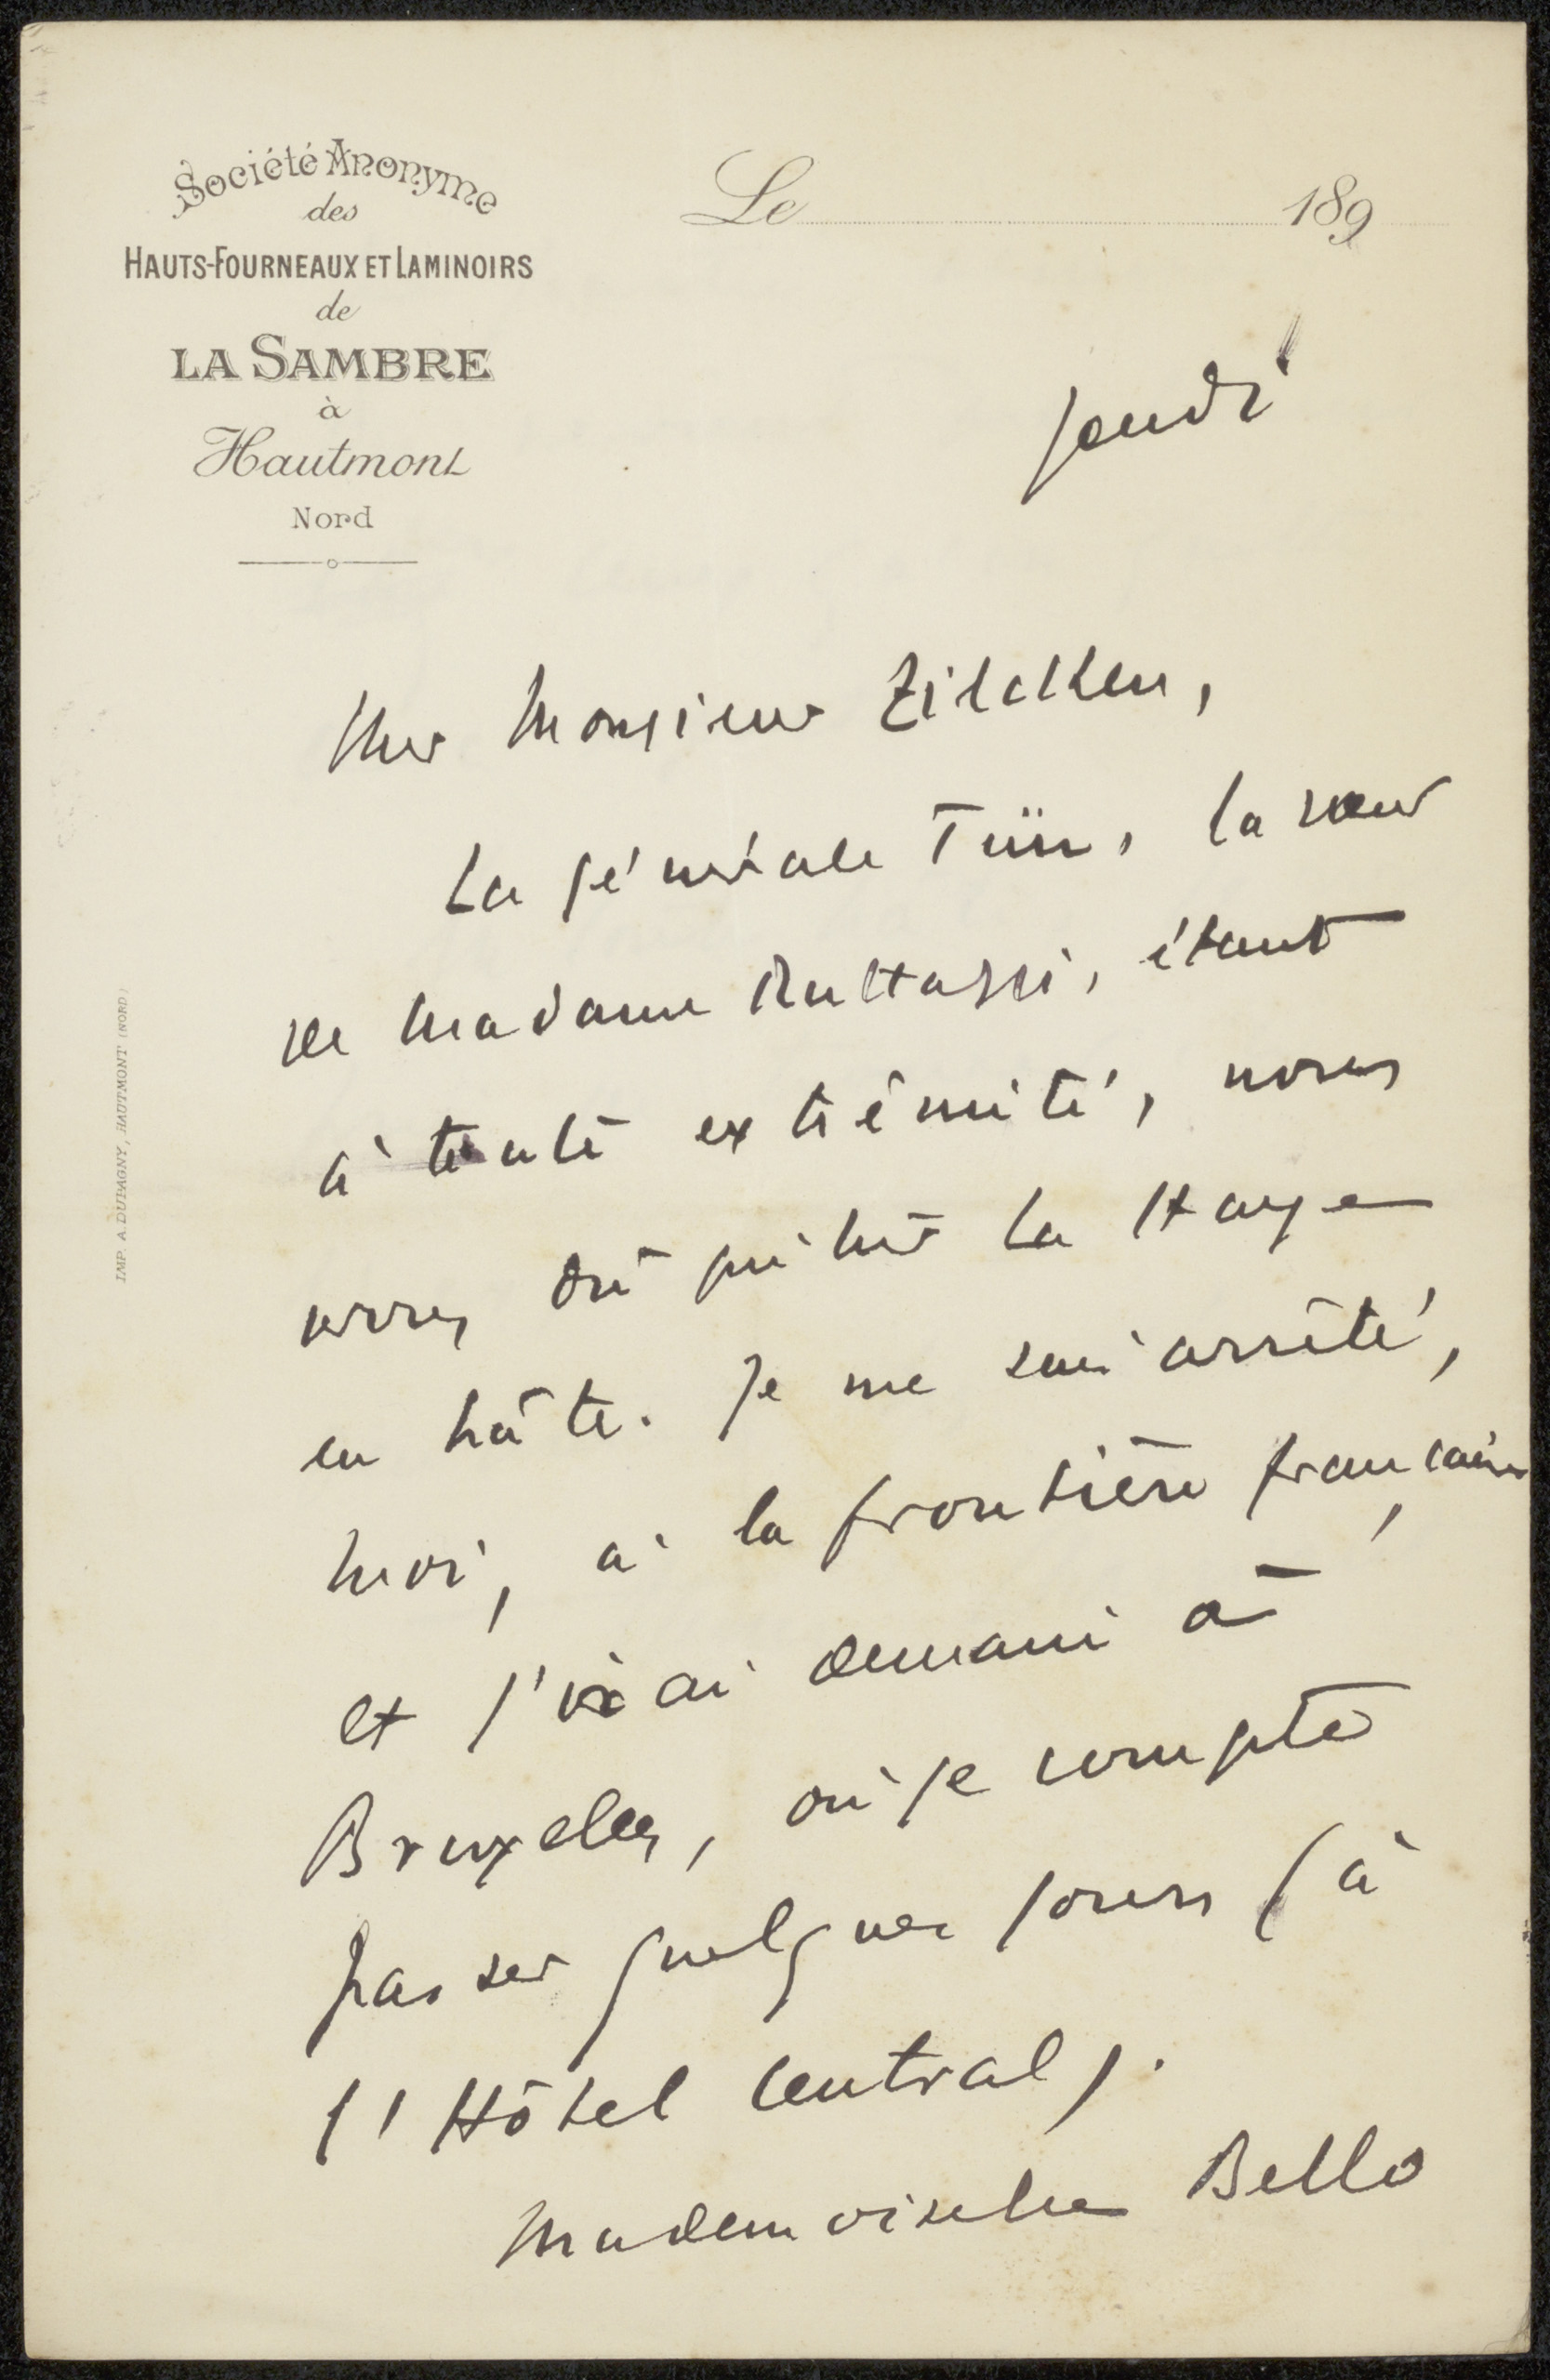 Société Anonyme
des
HAUTS-FOURNEAUX ET LAMINOIRS
de
LA SAMBRE
à
Hautmont
Nord
Le 189
jeudi
Cher Monsieur Zilcken,
La générale Türr, la sœur
de Madame Rattazzi, étant
à toute extrémité, nous
avons dû quitter La Haye
en hâte. Je me suis arrêté,
moi, à la frontière française,
et j'irai demain à
Bruxelles, où je compte
passer quelques jours (à
l'Hôtel Central).
Mademoiselle Bello
IMP. A. DUPAGNY, HAUTMONT (NORD)